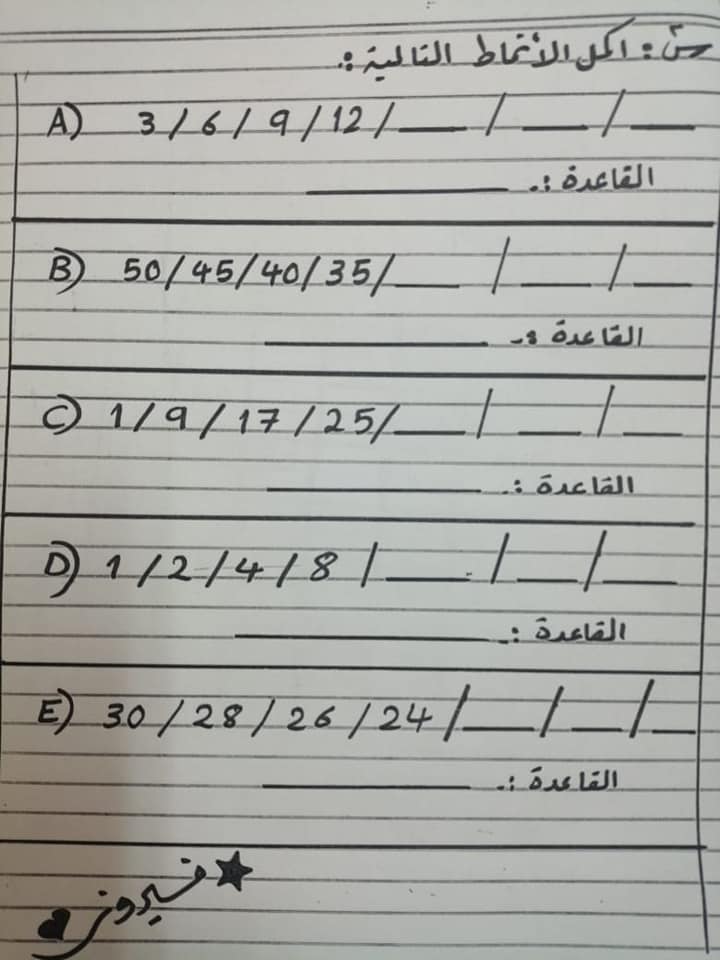 س: اكمل الأنماط التالية :.
A) 3 / 6 / 9 / 12 / __ / __ / __
القاعدة :. ______
B) 50 / 45 / 40 / 35 / __ / __ / __
القاعدة :- ______
C) 1 / 9 / 17 / 25 / __ / __ / __
القاعدة :. ______
D) 1 / 2 / 4 / 8 / __ / __ / __
القاعدة :. ______
E) 30 / 28 / 26 / 24 / __ / __ / __
القاعدة :. ______
فيروز